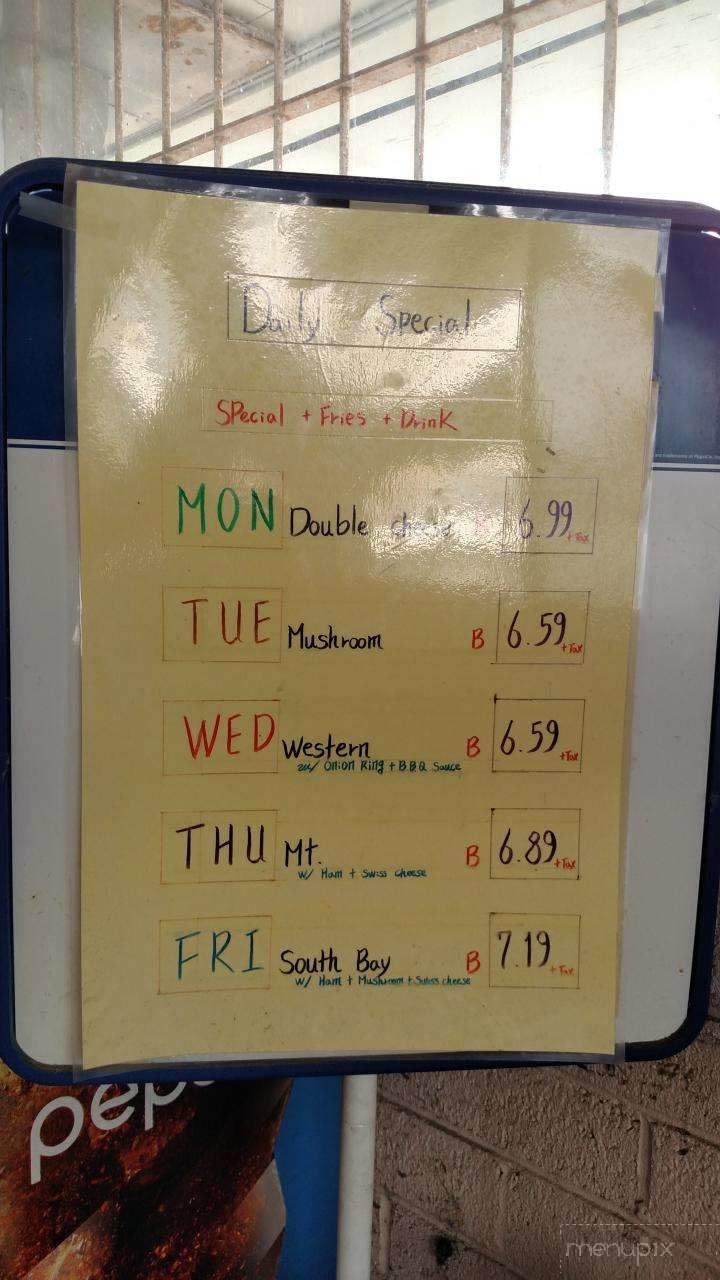 Daily Special
SPecial + Fries + Drink
MON Double cheese B 6.99 +Tax
TUE Mushroom B 6.59 +Tax
WED Western B 6.59 +Tax
w/ Onion Ring + B.B.Q Sauce
THU Mt. B 6.89 +Tax
w/ Ham + Swiss cheese
FRI South Bay B 7.19 +Tax
w/ Ham + Mushroom + Swiss cheese
peps
menupix